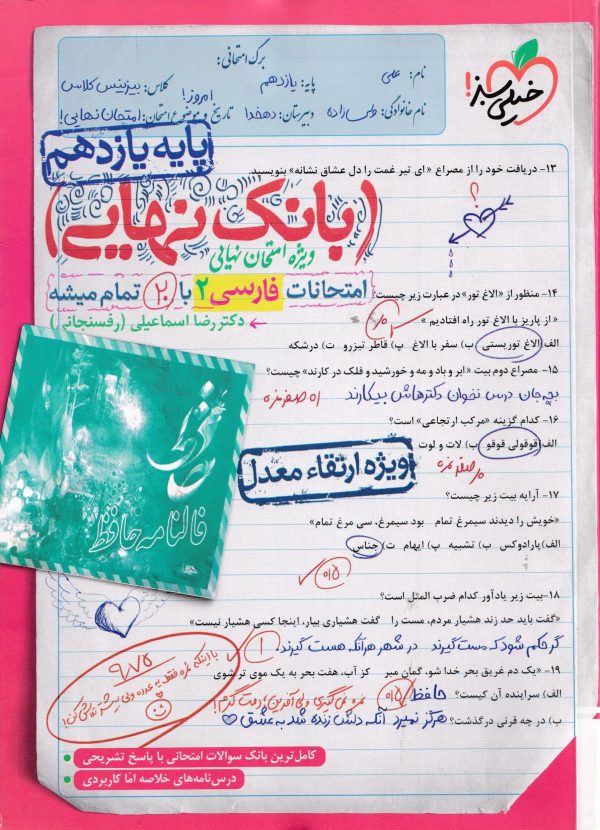 خیلی سبز!
برگ امتحانی:
نام: علی
پایه: یازدهم
کلاس: بیزینس کلاس
نام خانوادگی: ولی زاده
دبیرستان: دهخدا
تاریخ و موضوع امتحان: امروز! امتحان نهایی!
پایه یازدهم
۱۳- دریافت خود را از مصراع «ای تیر غمت را دل عشاق نشانه» بنویسید.
؟
(بانک نهایی)
ویژه امتحان نهایی
امتحانات فارسی ۲ با ۲۰ تمام میشه
دکتر رضا اسماعیلی (رفسنجانی)
۱۴- منظور از «الاغ تور» در عبارت زیر چیست؟
« از پاریز با الاغ تور راه افتادیم »
الف) الاغ توریستی ب) سفر با الاغ پ) قاطر تیزرو ت) درشکه
۱۵- مصراع دوم بیت «ابر و باد و مه و خورشید و فلک در کارند» چیست؟
بچه جان درس نخوان دکترهاش بیکارند
۱۶- کدام گزینه «مرکب ارتجاعی» است؟
الف) قوقولی قوقو ب) لات و لوت
ویژه ارتقاء معدل
فالنامه حافظ
۱۷- آرایه بیت زیر چیست؟
«خویش را دیدند سیمرغ تمام بود سیمرغ، سی مرغ تمام»
الف) پارادوکس ب) تشبیه پ) ایهام ت) جناس
۰/۵
۱۸- بیت زیر یادآور کدام ضرب المثل است؟
«گفت باید حد زند هشیار مردم، مست را گفت هشیاری بیار، اینجا کسی هشیار نیست»
گر حکم شود که مست گیرند در شهر هر آنکه هست گیرند
۱
۱۹- «یک دم غریق بحر خدا شو، گمان مبر کز آب، هفت بحر به یک موی تر شوی
الف) سراینده آن کیست؟ حافظ ۰/۵
ب) در چه قرنی درگذشت؟ هرگز نمیرد آنکه دلش زنده شد به عشق
۹/۷۵
کامل‌ترین بانک سوالات امتحانی با پاسخ تشریحی
درس‌نامه‌های خلاصه امّا کاربردی